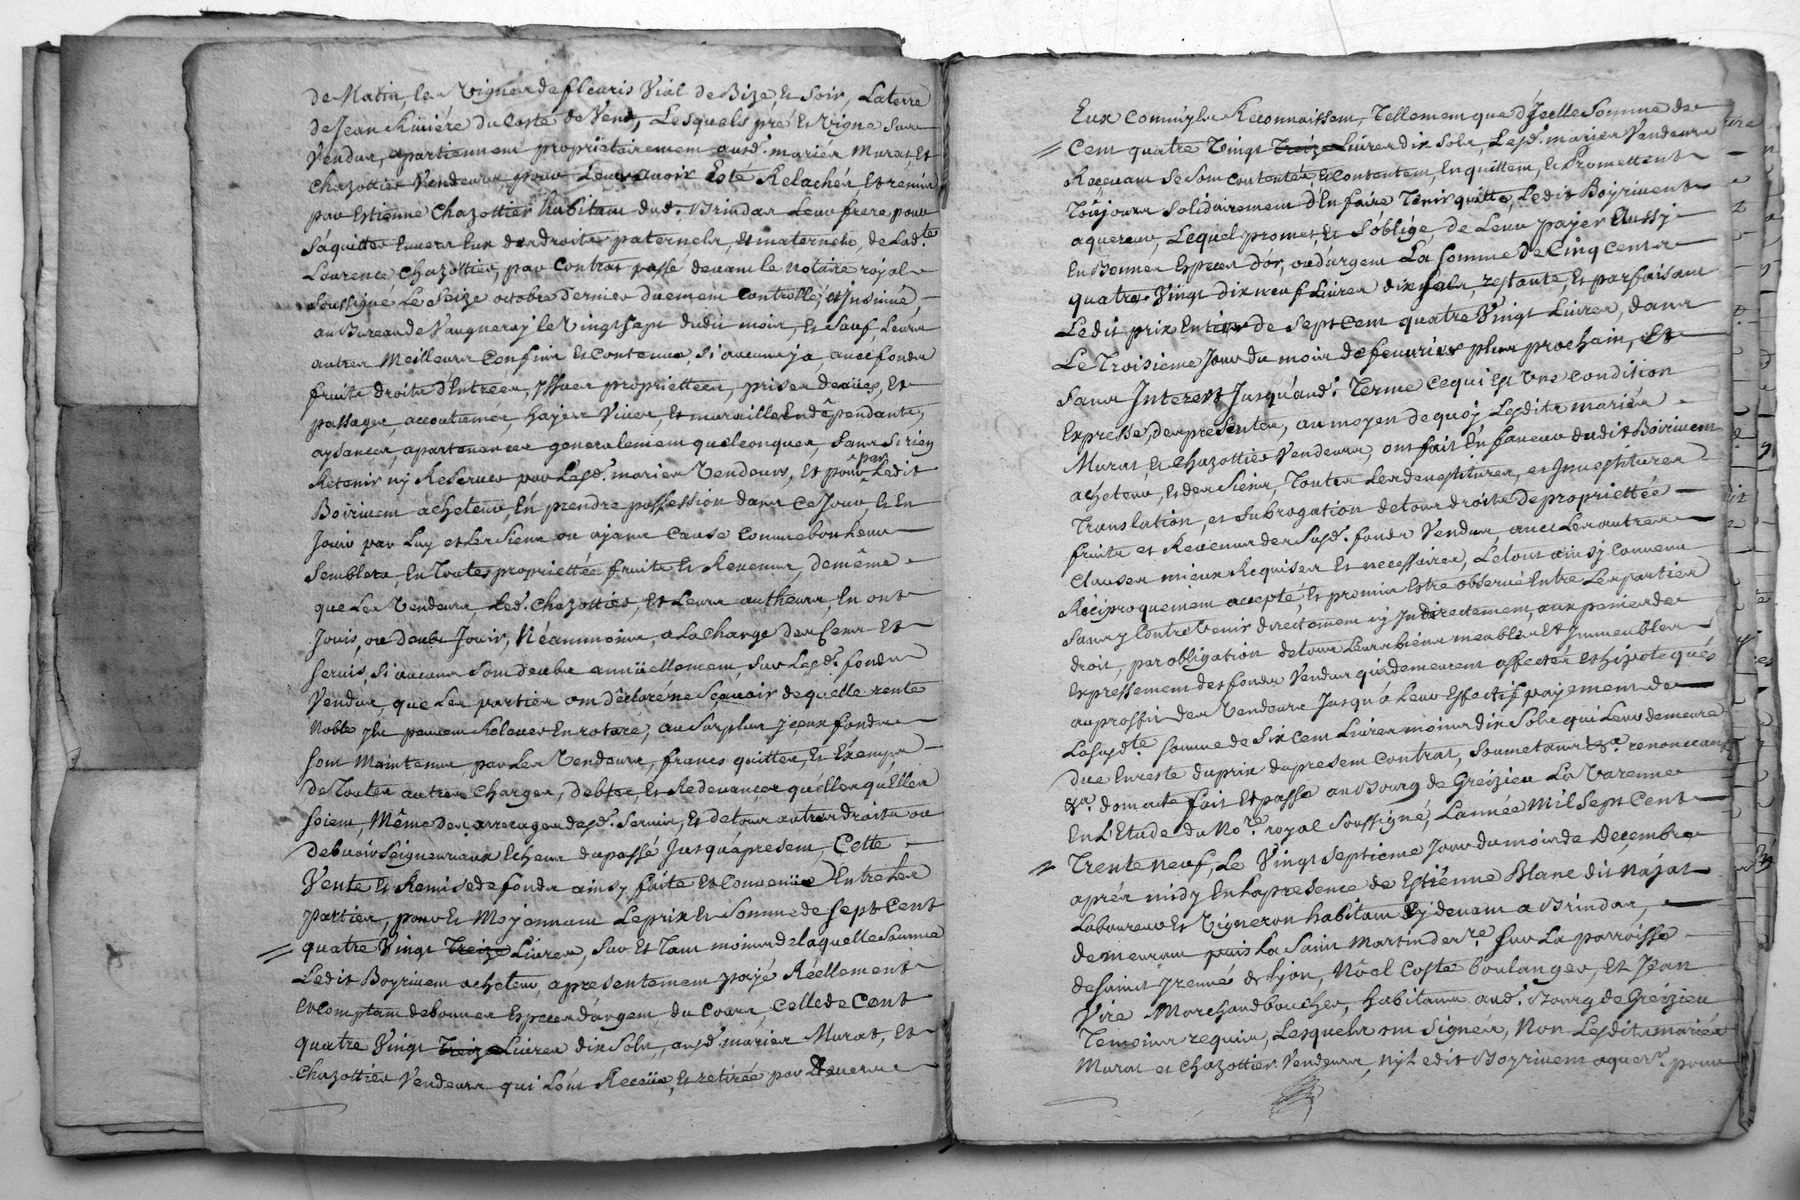 de Matin, les Vignes de fleuris Vial de Bize, et Soir, La terre
de Jean Riviére du Costé de Vend, Lesquels pré et Vigne Sus
Vendus, apartiennent proprietairement ausd. mariés Murat, et
Chazottier Vendeurs, pour Leur avoir Esté Relachés et remis
par Estienne Chazottier habitant dud. Brindas Leur frere pour
S'aquitter Envers Eux des droits paternels, et maternels, de Lad.te
Laurence Chazottier, par Contrat passé devant le Notaire royal
Soussigné Le Seize octobre Dernier duement Controllé, et Insinué
au Bureau de Vaugneray le Vingt Sept dudit mois, et Sauf Leurs
autres Meilleurs Confins et Contenue Si aucuns y a, avec fonds
fruits droits d'Entrées, Yssues proprietteés, prises deaües, et
passages, accoutumés, hayes Vives, et murailles En dêpendants,
aysances, apartenances generalement quelconques, Sans Si rien
Retenir ny Reserver par Lesd. mariés Vendeurs, et pour par Ledit
Boirivent acheteur, En prendre possession dans Ce Jour, et En
Jouir par Luy et Les Siens ou ayant Cause Comme bon Leur
Semblera, En Toutes proprietteé fruits et Revenus, de même
que Les Vendeurs Led. Chazottier, et Leurs autheurs, En ont
Jouis, ou deubs Jouir, Néanmoins, a La Charge des Cens et
Servis, Si aucuns Sont deubs annüellement, Sur Lesd. fonds
Vendus, que Les parties ont dêclaré ne Sçavoir de quelle rente
Noble Ils peuvent Relever En roture, au Surplus Iceux fonds
Sont Maintenus par Les Vendeurs, francs quittes, et Exempts
de Toutes autres Charges, debtes, et Redevances quelles qu'Elles
Soient, Même des arrerages desd. Servis, et de tous autres droits ou
debvoirs Seigneuriaux Echeus du passé Jusqu'apresent, Cette
Vente et Remise de fonds ainsy faite et Convenüe Entre Les
Parties, pour et Moyennant Le prix et Somme de Sept Cent
quatre Vingt Treize Livres, Sur et Tant moins de laquelle Somme
Ledit Boyrivent acheteur, apresentement payé Réellement
et Comptant de bonnes Especes d'argent, du Cours, Celle de Cent
quatre Vingt Treize Livres dix Sols, ausd. mariés Murat, et
Chazottier Vendeurs qui L'ont Receüe, et retirée par Devers
Eux Comm'Ils Reconnaissent, Tellement que d'Jcelle Somme de
Cent quatre Vingt Treize Livres dix Sols, Lesd. mariés Vendeurs
Recevant Se Sont Contentés et Contentent, En quittent, et Promettent
Toûjours Solidairement d'En faire Tenir quitte, Ledit Boyrivent
aquereur, Lequel promet, et S'oblige, de Leur payer Aussy
En Bonnes Especes d'or, ou d'argent La Somme de Cinq Cents
quatre Vingt dix neuf Livres dix Sols, restante, et parfaisant
Ledit prix Entier de Sept Cent quatre Vingt Livres, dans
Le Troisieme Jour du mois de fevrier plus prochain, Et
Sans Interest Jusqu'aud. Terme Ce qui Est Une Condition
Expresse, des presentes, au moyen de quoy Lesdits mariés
Murat et Chazottier Vendeurs, ont fait En faveur dudit Boirivent
acheteur, et des Siens, Toutes Les devestitures, et Investitures
Translation, et Subrogation de tous droits de proprietteé
fruits et Revenus des Susd. fonds Vendus, avec Les autres
Clauses mieux Requises et necessaires, Le tout ainsy Convenu
Réciproquement accepté, et promis Estre observé Entre Les parties
Sans y Contrevenir directement ny Indirectement, aux peines de
droit, par obligation de tous Leurs biens meubles Et Immeubles
Expressement des fonds Vendus qui demeurent affectés et hipotequés
au proffit des Vendeurs Jusqu'a Leur Effectif payement de
La Susd.te Somme de Six Cent Livres moins dix Sols qui Leur demeure
due En reste du prix du present Contrat, Soumettans &a. renonceans
&a. dont acte fait Et passé au Bourg de Grézieu La Varenne
En L'Etude du No.re royal Soussigné, L'année Mil Sept Cent
Trente neuf, Le Vingt Septieme Jour du mois de Decembre
aprés midy En la presence de Estienne Blanc dit Najat
Laboureur et Vigneron habitant Cy devant a Brindas,
demeurant puis La Saint Martin der.re Sur La parroisse
de Saint Irenné de Lyon, Nôel Coste boulanger, et Jean
Viré Marchand boucher, habitans aud. Bourg de Grézieu
Temoins requis, Lesquels ont Signés, Non Lesdits mariés
Murat et Chazottier Vendeurs, ny Ledit Boyrivent aquer.r pour